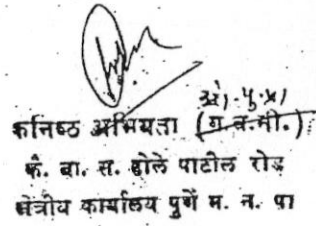 ओ. पु. प्रा
कनिष्ठ अभियता (ग.व.नी.)
कै. बा. स. ढोले पाटील रोड
क्षेत्रीय कार्यालय पुणें म. न. पा